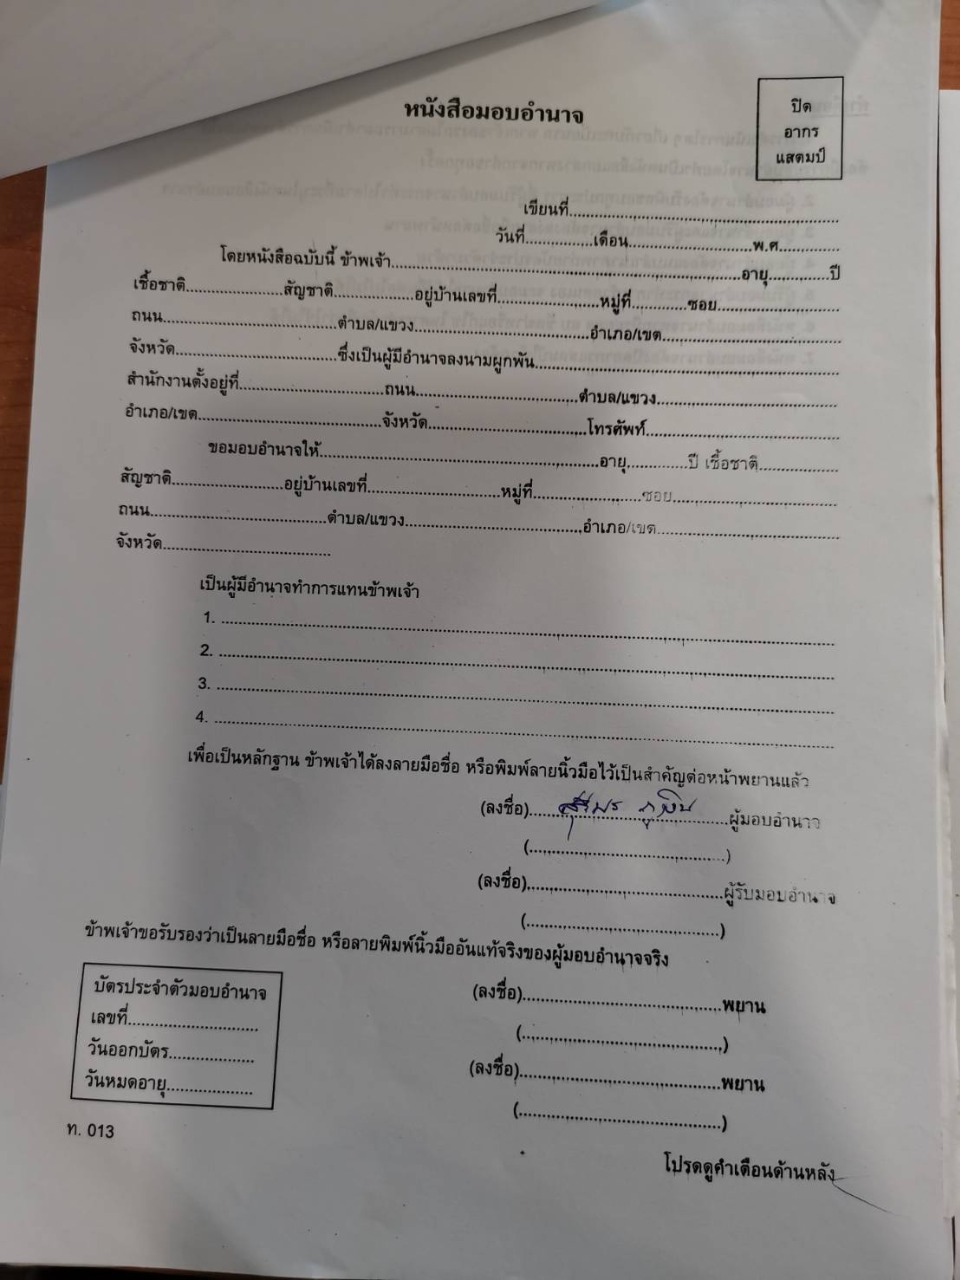 หนังสือมอบอำนาจ
ปิด
อากร
แสตมป์
เขียนที่........................................................
วันที่...............เดือน...........................พ.ศ.............
โดยหนังสือฉบับนี้ ข้าพเจ้า...........................................................................อายุ.............ปี
เชื้อชาติ.....................สัญชาติ.................อยู่บ้านเลขที่......................หมู่ที่............ซอย..........................
ถนน......................................ตำบล/แขวง......................................อำเภอ/เขต......................................
จังหวัด...................................ซึ่งเป็นผู้มีอำนาจลงนามผูกพัน.................................................................
สำนักงานตั้งอยู่ที่...............................ถนน...................................ตำบล/แขวง.......................................
อำเภอ/เขต........................................จังหวัด..................................โทรศัพท์.........................................
ขอมอบอำนาจให้............................................................อายุ.............ปี เชื้อชาติ.................
สัญชาติ........................อยู่บ้านเลขที่.............................หมู่ที่.......................ซอย....................................
ถนน......................................ตำบล/แขวง......................................อำเภอ/เขต.......................................
จังหวัด....................................
เป็นผู้มีอำนาจทำการแทนข้าพเจ้า
1. ....................................................................................................................................
2. ....................................................................................................................................
3. ....................................................................................................................................
4. ....................................................................................................................................
เพื่อเป็นหลักฐาน ข้าพเจ้าได้ลงลายมือชื่อ หรือพิมพ์ลายนิ้วมือไว้เป็นสำคัญต่อหน้าพยานแล้ว
(ลงชื่อ)...........................................ผู้มอบอำนาจ
(...........................................)
(ลงชื่อ)...........................................ผู้รับมอบอำนาจ
(...........................................)
ข้าพเจ้าขอรับรองว่าเป็นลายมือชื่อ หรือลายพิมพ์นิ้วมืออันแท้จริงของผู้มอบอำนาจจริง
บัตรประจำตัวมอบอำนาจ
เลขที่............................
วันออกบัตร..................
วันหมดอายุ...................
(ลงชื่อ)...........................................พยาน
(...........................................)
(ลงชื่อ)...........................................พยาน
(...........................................)
ท. 013
โปรดดูคำเตือนด้านหลัง